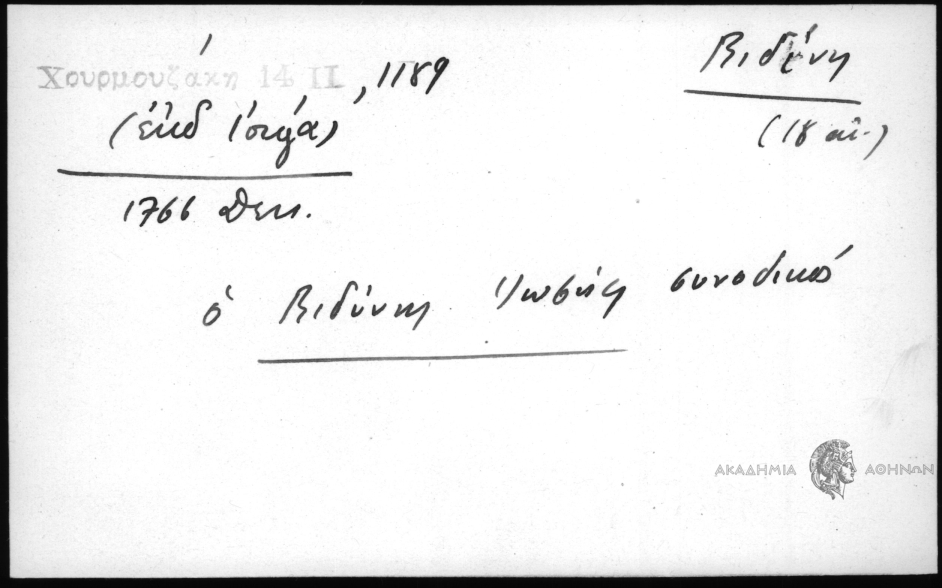 Χουρμουζάκη 14 II, 1189
Βιδύνη
(ἐκδ Ἰόργα)
(18 αἰ.)
1766 Δεκ.
ὁ Βιδύνης Ἰωσὴφ συνοδικῶς
ΑΚΑΔΗΜΙΑ ΑΘΗΝΩΝ